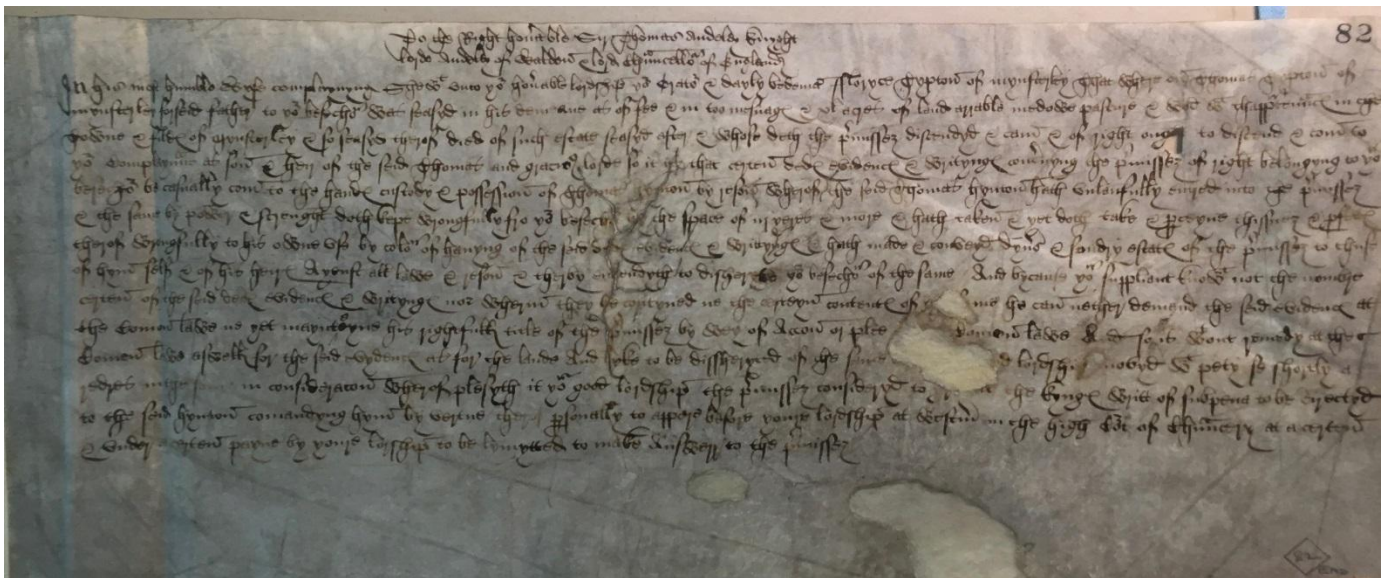 82
To the Right honorable Sir Thomas Audeley Knyght
lorde Audeley of Walden & lord Chauncello of England
In his most humble wyse complaynyng Shewyth unto yo honable lordship yo Orato & dayly bedeman Gypton of Mynsterley that where one Thomas Gypton of
Mynsterley seid father to yo besecho was seasyd in his demeane as of fee & in too mesuage & acres of lond arrable medowe pasture & wod wt thappurtenunce in the
towne & fildes of Mynsterley & so seasyd therof died of such estate seasyd after whose deth the pmissez discendyd & cam & of right ought to discend & com to
yo Complaynant as son & heir of the seid Thomas and gracios lorde so it is that certen dedes evidences & wrytynges concernyng the pmissez of right belongyng to yo
be casually com to the handes custody & possession of Thomas Hymon by reson wherof the seid Thomas Hymon hath unlaufully entred into the pmissez
& the same by power & strenght doth kepe wrongfully fro yo besecho by the space of yeres & more & hath taken & yet doth take & pceyve thissuez &
therof wrongfully to his owne use by colo of havyng of the seid dedes evidences & wrytynges & hath made & conveyd dyvs & sondry estates of the pmissez to thuse
of hym self & of his heires Ayenst all lawe & reson & therby entendyth to disherett yo besecho of the same And bycause yo suppliant knowt not the nombre
certen of the seid dedes evidences & wrytynges nor wherin they be conteyned ne the certeyn contentes of same he can nether demand the seid evidences at
the Comon lawe ne yet maynteyne his rightfull title of the pmissez by wey of Accon or plee Comen lawe And so is wtout remedy at the
Comen lawe aswell for the seid evidences as for the landes And lyke to be dissherited of the same lordship movyd wt pety
in consideracon wherof plesyth it yo good lordship the pmissez consideryd to the kynges writt of subpena to be directyd
to the seid hymon comandyng hym by vertue therof psonally to appere before youre lordeship at Westm in the high Cort of Chauncery at a certen
& under a certen payne by youre lorship to be lymytted to make Answer to the pmissez